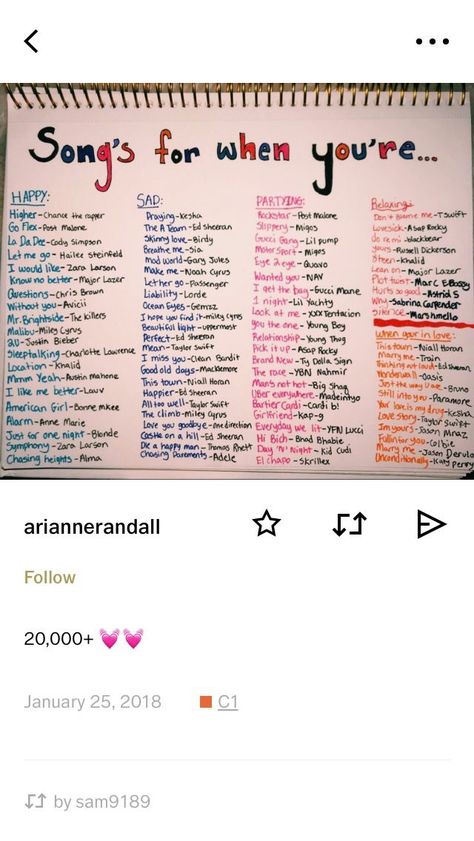 Song's for when you're...
HAPPY:
Higher-Chance the rapper
Go Flex-Post Malone
La Da Dee-Cody Simpson
Let me go-Hailee Steinfeld
I would like-Zara Larson
Know no better-Major Lazer
Questions-Chris Brown
Without you-Avicii
Mr. Brightside-The Killers
Malibu-Miley Cyrus
2U-Justin Bieber
Sleeptalking-Charlotte Lawrence
Location-Khalid
Mmm Yeah-Austin Mahone
I like me better-Lauv
American Girl-Bonne McKee
Alarm-Anne Marie
Just for one night-Blonde
Symphony-Zara Larson
Chasing heights-Alma
SAD:
Praying-Kesha
The A Team-Ed Sheeran
Skinny love-Birdy
Breathe me-Sia
Mad world-Gary Jules
Make me-Noah Cyrus
Let her go-Passenger
Liability-Lorde
Ocean Eyes-
I hope you find it-miley cyrus
Beautiful light-uppermost
Perfect-Ed Sheeran
Mean-Taylor Swift
I miss you-Clean Bandit
Good old days-Macklemore
This town-Niall Horan
Happier-Ed Sheeran
All too well-Taylor Swift
The climb-Miley Cyrus
Love you goodbye-One direction
Castle on a hill-Ed Sheeran
Die a happy man-Thomas Rhett
Chasing Pavements-Adele
PARTYING:
Rockstar-Post Malone
Slippery-Migos
Gucci Gang-Lil pump
Motor Sport-Migos
Eye 2 eye-Quavo
Wanted you-NAV
I get the bag-Gucci Mane
1 night-Lil Yachty
Look at me-XXXTentacion
You the one-Young Boy
Relationship-Young Thug
Pick it up-Asap Rocky
Brand New-Ty Dolla Sign
The race-YBN Nahmir
Man's not hot-Big Shaq
Uber everywhere-Madeintyo
Bartier Cardi-Cardi b!
Girlfriend-Kap-g
Everyday we lit-YFN Lucci
Hi Bich-Bhad Bhabie
Day 'N' Night-Kid Cudi
El chapo-Skrillex
Relaxing:
Don't Blame me-T swift
Lovesick-Asap Rocky
do re mi-blackbear
yours-Russell Dickerson
Khalid
Lean on-Major Lazer
Plot twist-Marc E. Bassy
Hurts so good-Astrid S
Why-Sabrina Carpenter
Silence-Marshmello
When your in love:
This town-Niall Horan
Marry me-Train
Thinking out loud-Ed Sheeran
Wonderwall-Oasis
Just the way u are-Bruno
Still into you-Paramore
Your love is my drug-Kesha
Love story-Taylor Swift
Im yours-Jason Mraz
Fallin for you-Colbie
Marry me-Jason Derulo
Unconditionally-Katy Perry
ariannerandall
Follow
20,000+
January 25, 2018
C1
by sam9189